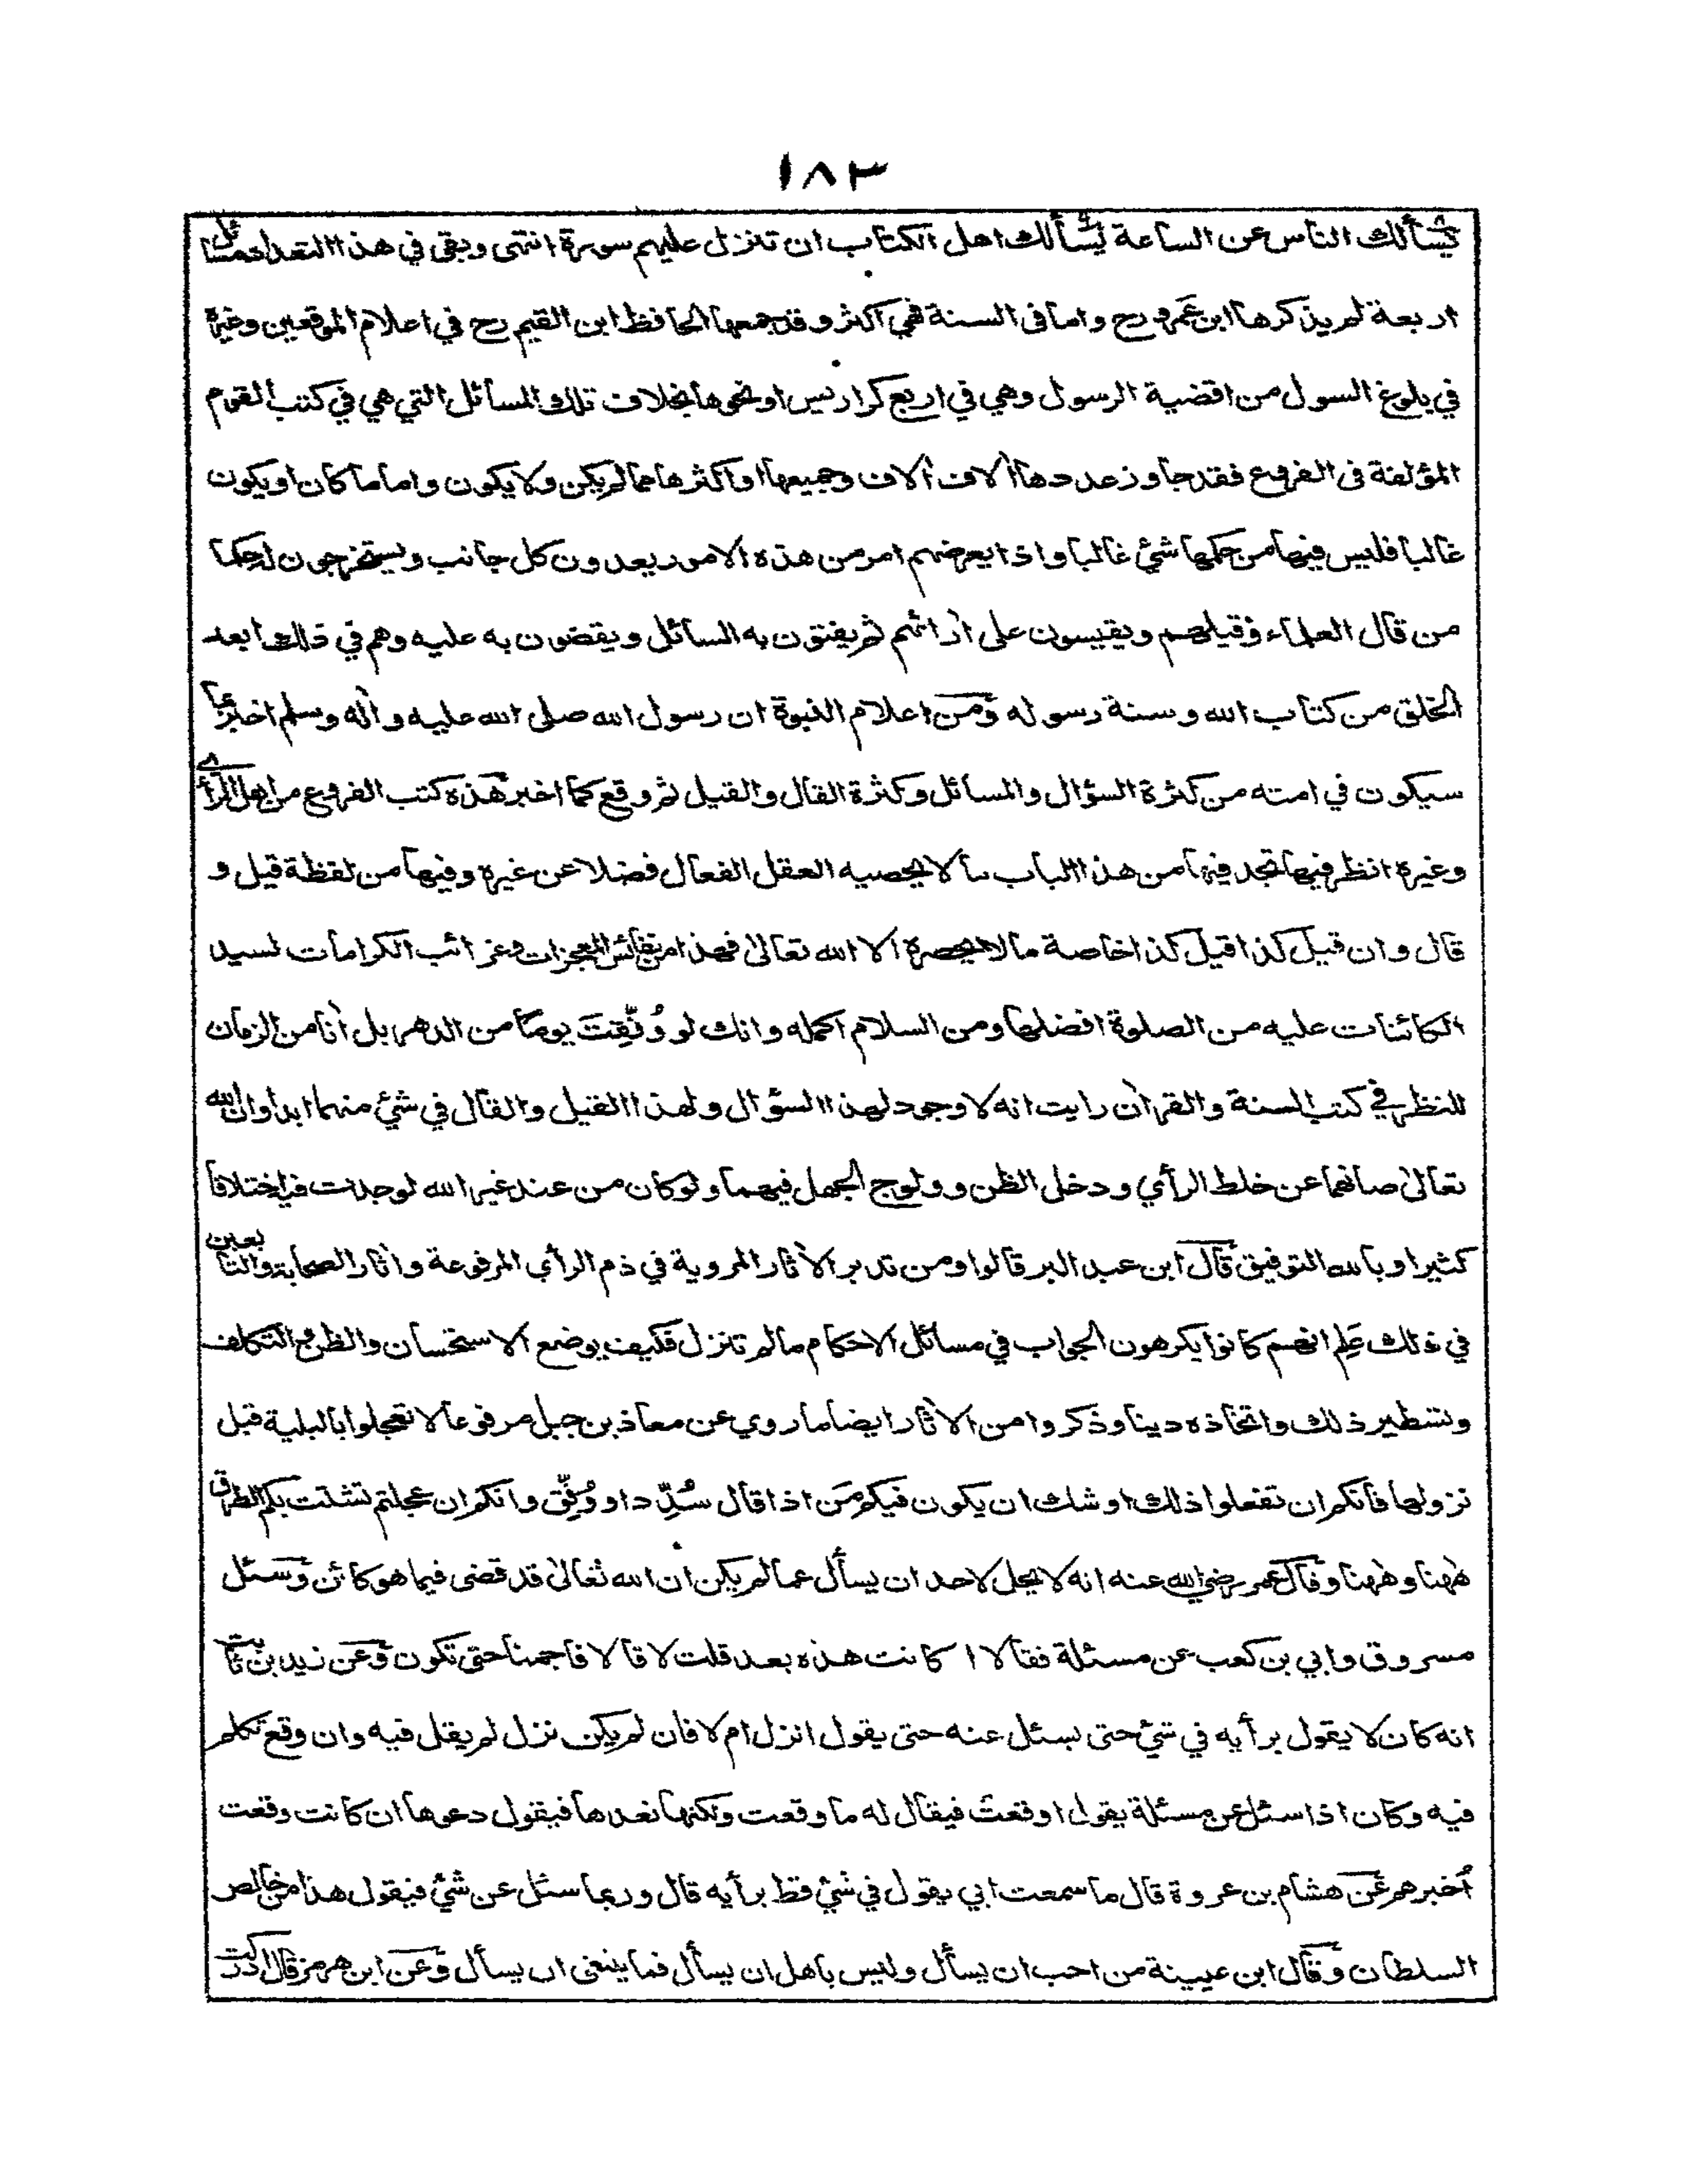 ١٨٣
يسألك الناس عن الساعة يسألك اهل الكتاب ان تنزل عليهم سورة انتهى وبقي في هذا التعداد مسائل
اربعة لم يذكرها ابن عمرو رح واما في السنة فهي اكثر وقد جمعها الحافظ ابن القيم رح في اعلام الموقعين وغيره
في بلوغ السول من اقضية الرسول وهي في اربع كراريس او نحوها بخلاف تلك المسائل التي هي في كتب القوم
المؤلفة في الفروع فقد جاوز عددها آلاف آلاف وجميعها او اكثرها مما لم يكن ولا يكون واما ما كان او يكون
غالبا فليس فيها من حكمها شئ غالبا واذا يعرضهم امر من هذه الامور يعدون كل جانب ويستخرجون احكاما
من قال العلماء وقيلهم ويقيسون على آرائهم ثم يفتون به السائل ويقضون به عليه وهم في ذلك ابعد
الخلق من كتاب الله وسنة رسوله ومن اعلام النبوة ان رسول الله صلى الله عليه وآله وسلم اخبر بما
سيكون في امته من كثرة السؤال والمسائل وكثرة القال والقيل ثم وقع كما اخبر هذه كتب الفروع من اهل الرأي
وغيره انظر فيها تجد فيها من هذا الباب ما لا يحصيه العقل الفعال فضلا عن غيره وفيها من لفظة قيل و
قال وان قيل كذا قيل كذا خاصة ما لا يحصره الا الله تعالى فهذا من نفائس المعجزات وغرائب الكرامات لسيد
الكائنات عليه من الصلوة افضلها ومن السلام اكمله وانك لو وُفِّقتَ يوما من الدهر بل آنا من الزمان
للنظر في كتب السنة والقرآن رايت انه لا وجود لهذا السؤال ولهذا القيل والقال في شئ منهما ابدا وان الله
تعالى صانهما عن خلط الرأي ودخل الظن وولوج الجهل فيهما ولو كان من عند غير الله لوجدت فيه اختلافا
كثيرا وبالله التوفيق قال ابن عبد البر قالوا ومن تدبر الآثار المروية في ذم الرأي المرفوعة وآثار الصحابة والتابعين
في ذلك عَلِم انهم كانوا يكرهون الجواب في مسائل الاحكام ما لم تنزل فكيف بوضع الاستحسان والظن والتكلف
وتسطير ذلك واتخاذه دينا وذكروا من الآثار ايضا ما روي عن معاذ بن جبل مرفوعا لا تعجلوا بالبلية قبل
نزولها فانكم ان تفعلوا ذلك اوشك ان يكون فيكم مَن اذا قال سُدِّد او وُفِّق وانكم ان عجلتم تشتت بكم الطرق
ههنا وههنا وقال عمر رضي الله عنه انه لا يحل لاحد ان يسأل عما لم يكن ان الله تعالى قد قضى فيما هو كائن وسئل
مسروق وابي بن كعب عن مسئلة فقالا ا كانت هذه بعد قلت لا قالا فاجمنا حتى تكون وعن زيد بن ثابت
انه كان لا يقول برأيه في شئ حتى يسئل عنه حتى يقول انزل ام لا فان لم يكن نزل لم يقل فيه وان وقع تكلم
فيه وكان اذا سئل عن مسئلة يقول اوقعت فيقال له ما وقعت ولكنها نعدها فيقول دعوها ان كانت وقعت
أخبرهم عن هشام بن عروة قال ما سمعت ابي يقول في شئ قط برأيه قال وربما سئل عن شئ فيقول هذا من خالص
السلطان وقال ابن عيينة من احب ان يسأل وليس باهل ان يسأل فما ينبغي ان يسأل وعن ابن هرمز قال ادركت